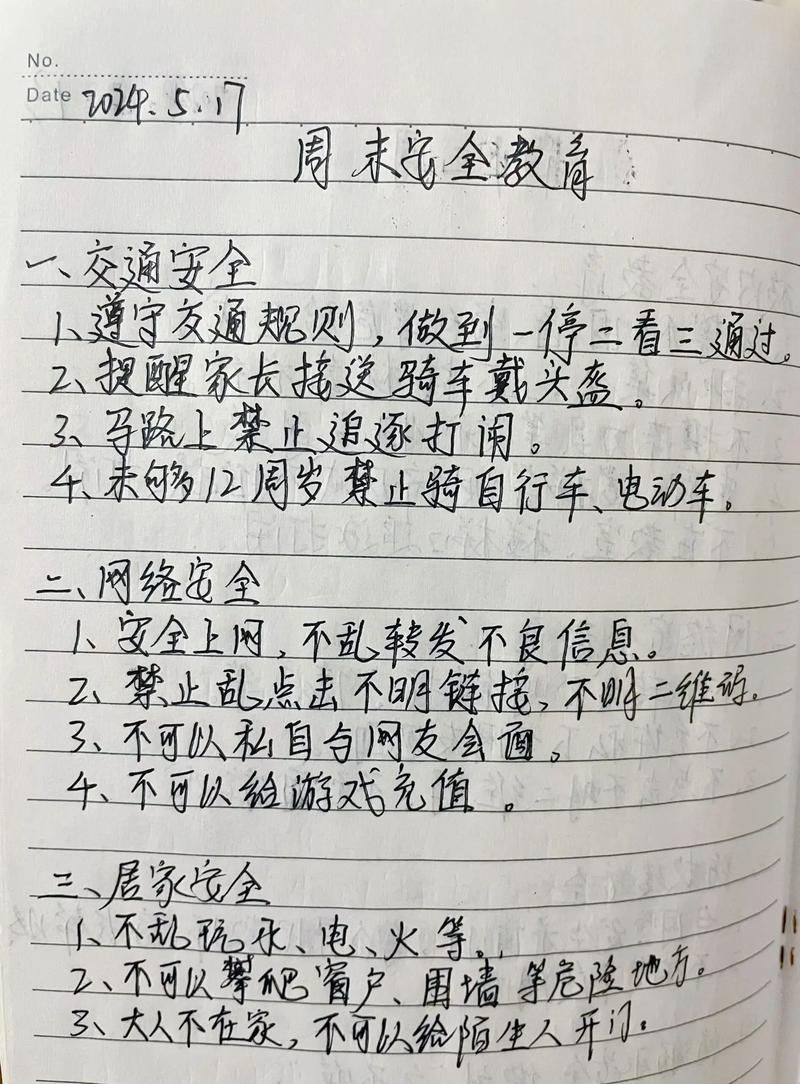 No.
Date 2024.5.17
周末安全教育
一、交通安全
1、遵守交通规则,做到一停二看三通过。
2、提醒家长接送骑车戴头盔。
3、马路上禁止追逐打闹。
4、未够12周岁禁止骑自行车、电动车。
二、网络安全
1、安全上网,不乱转发不良信息。
2、禁止乱点击不明链接、不明二维码。
3、不可以私自与网友会面。
4、不可以给游戏充值。
三、居家安全
1、不乱玩水、电、火等。
2、不可以攀爬窗户、围墙等危险地方。
3、大人不在家,不可以给陌生人开门。